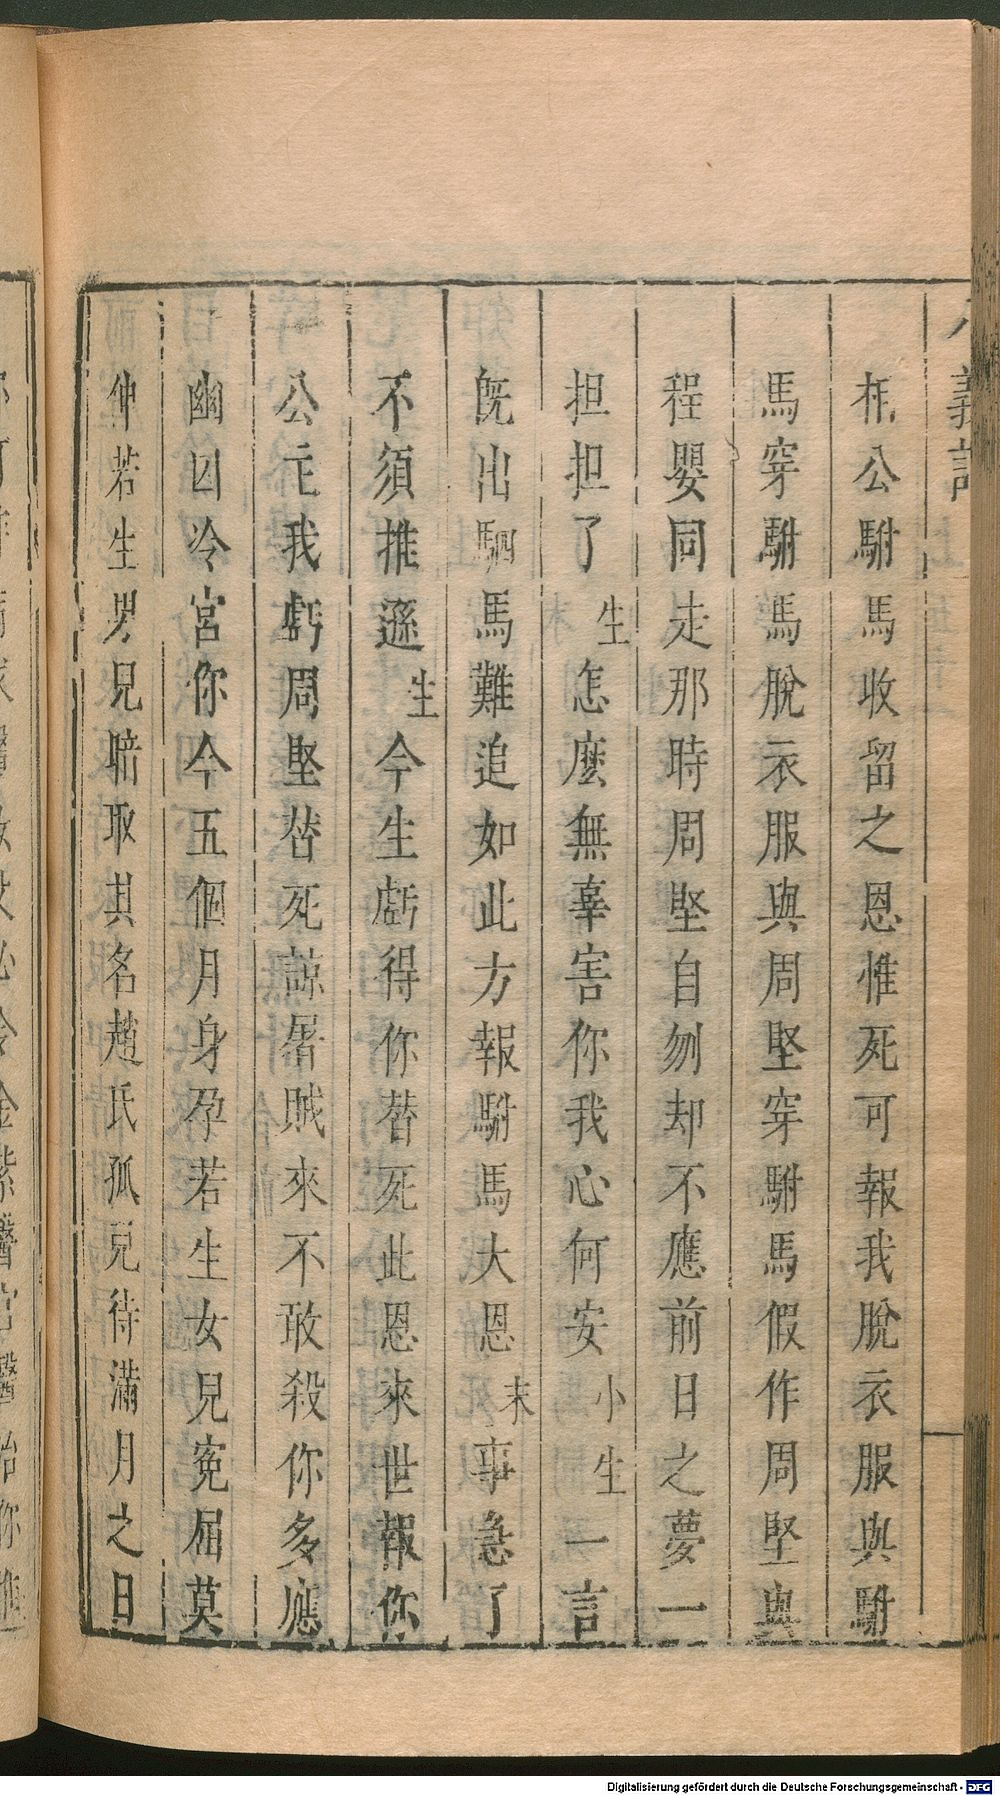 八義記
相公駙馬收留之恩惟死可報我脫衣服與駙
馬穿駙馬脫衣服與周堅穿駙馬假作周堅與
程嬰同走那時周堅自刎却不應前日之夢一
担担了生怎麼無辜害你我心何安小生一言
旣出駟馬難追如此方報駙馬大恩末事急了
不須推遜生今生虧得你替死此恩來世報你
公主我虧周堅替死諒屠賊來不敢殺你多應
幽囚冷宮你今五個月身孕若生女兒寃屈莫
伸若生男兒賠取其名趙氏孤兒待滿月之日
Digitalisierung gefördert durch die Deutsche Forschungsgemeinschaft - DFG